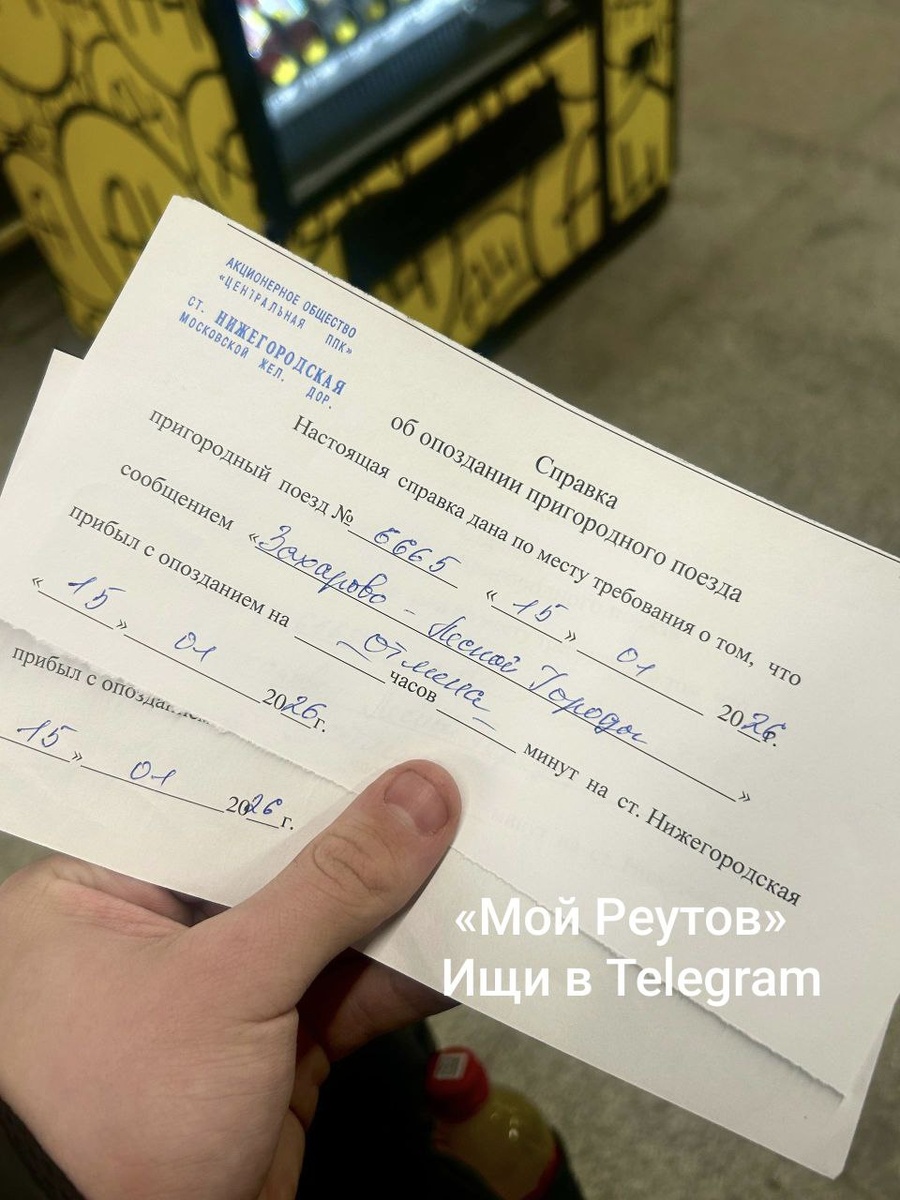 АКЦИОНЕРНОЕ ОБЩЕСТВО
«ЦЕНТРАЛЬНАЯ ППК»
СТ. НИЖЕГОРОДСКАЯ
МОСКОВСКОЙ ЖЕЛ. ДОР.
Справка
об опоздании пригородного поезда
Настоящая справка дана по месту требования о том, что
пригородный поезд № 6665 «15» 01 2026г.
сообщением «Захарово - Лесной Городок»
прибыл с опозданием на - отмена - часов минут на ст. Нижегородская
«15» 01 2026г.
прибыл с опозданием
15» 01 2026г.
«Мой Реутов»
Ищи в Telegram